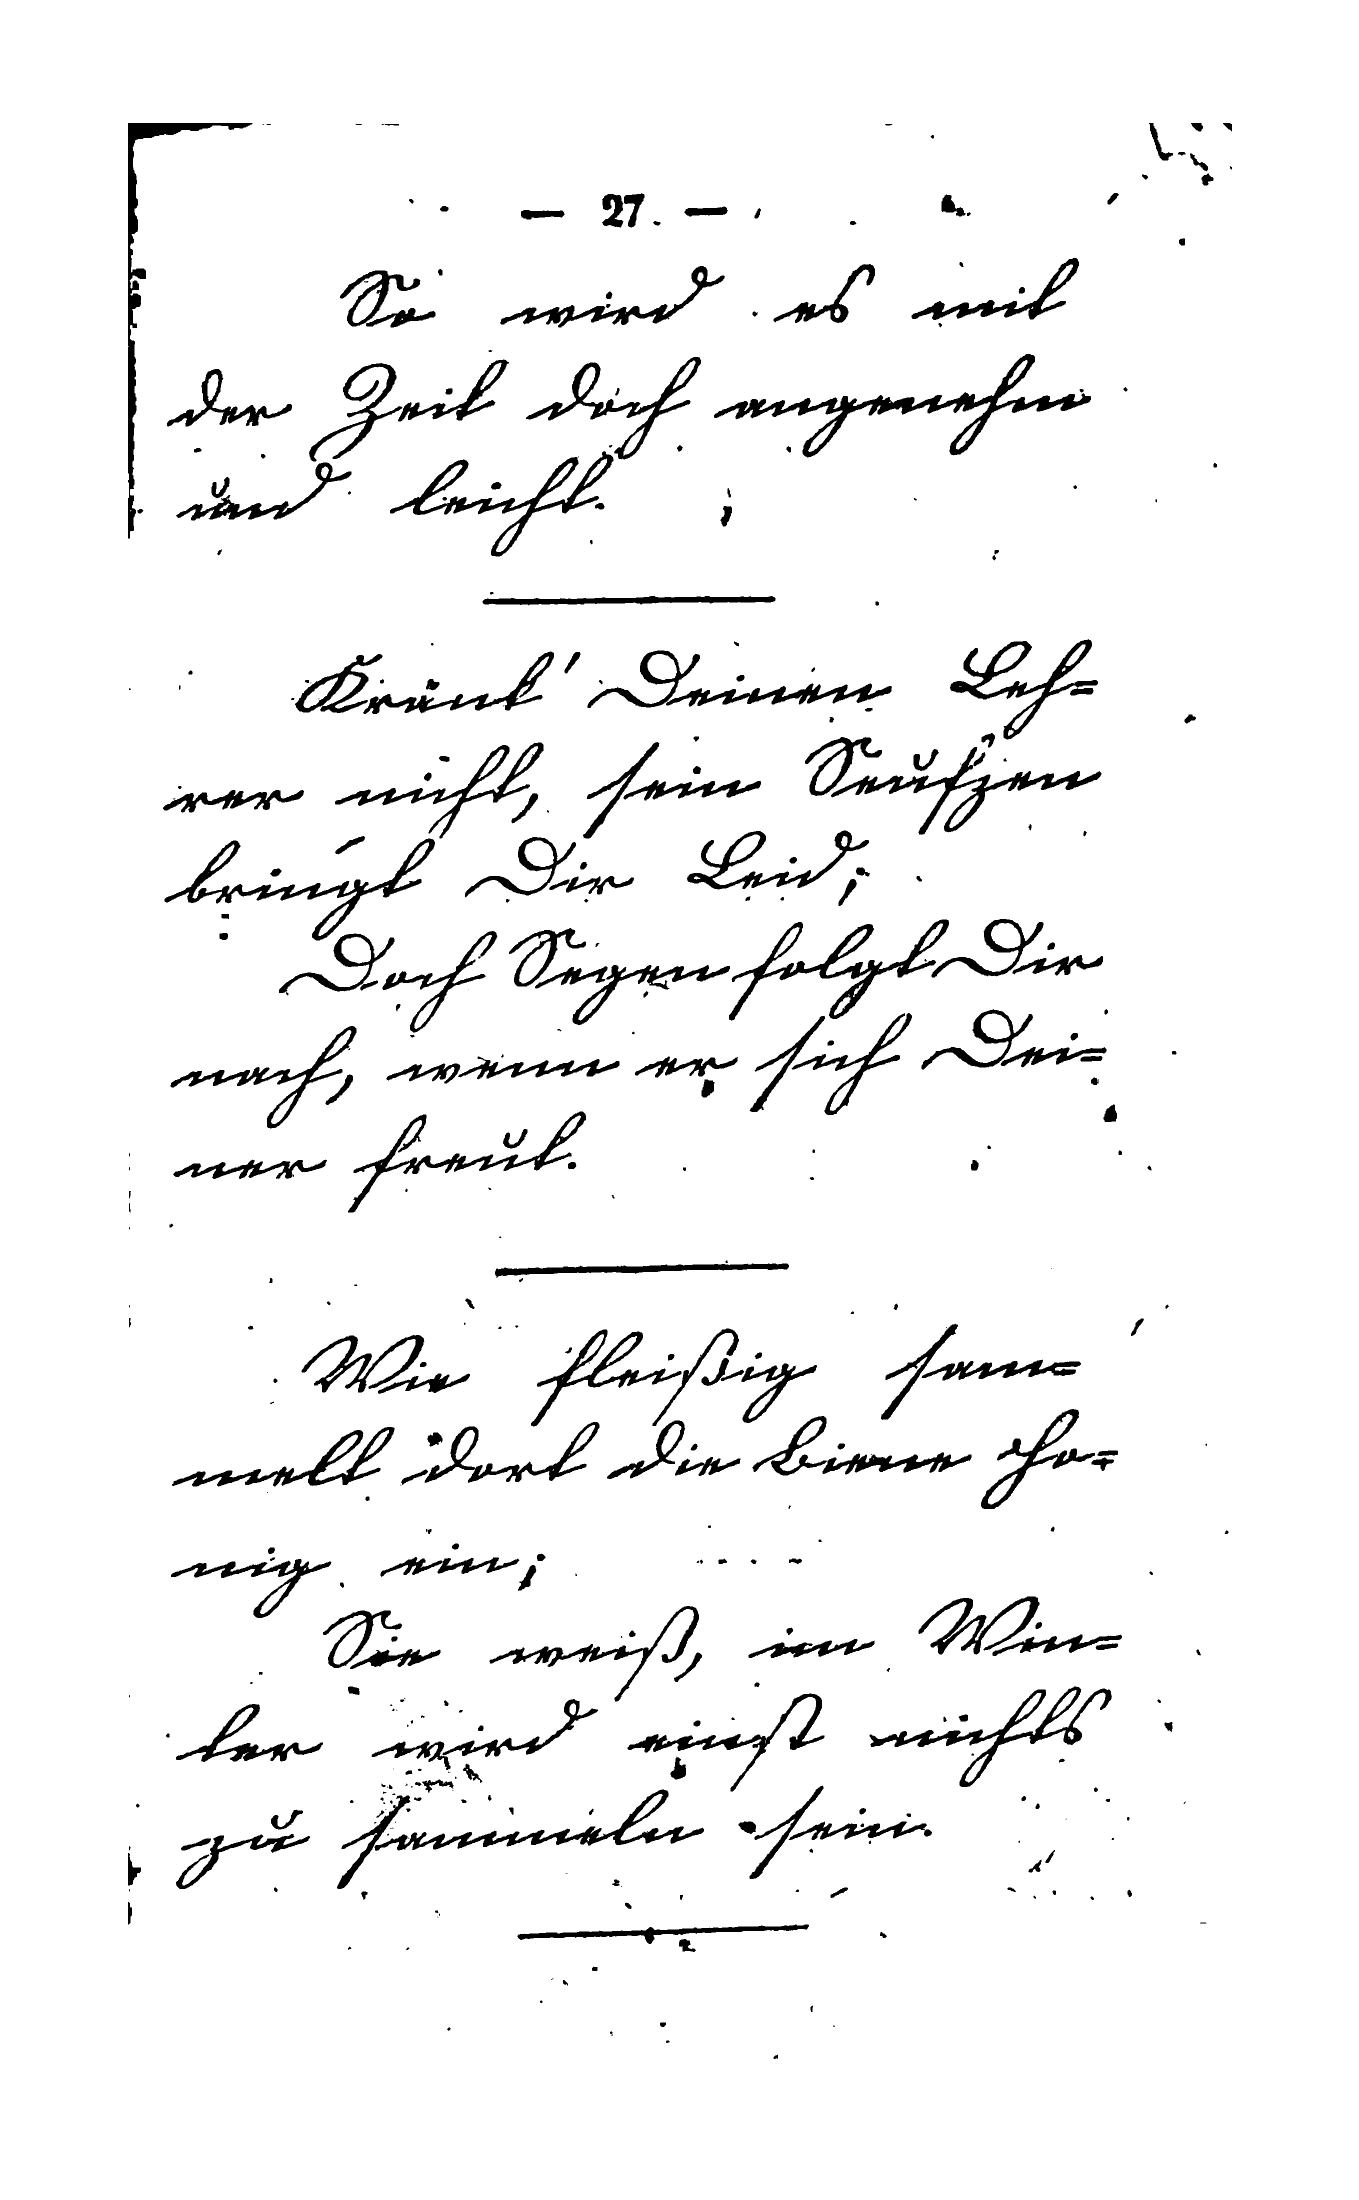 — 27. —
So wird es mit
der Zeit doch angenehm
und leicht.
Kränk' Deinen Leh=
rer nicht, sein Seufzen
bringt Dir Leid;
Doch Segen folgt Dir
nach, wenn er sich Dei=
ner freut.
Wie fleißig sam=
melt dort die Biene Ho=
nig ein;
Sie weiß, im Win=
ter wird einst nichts
zu sammeln sein.